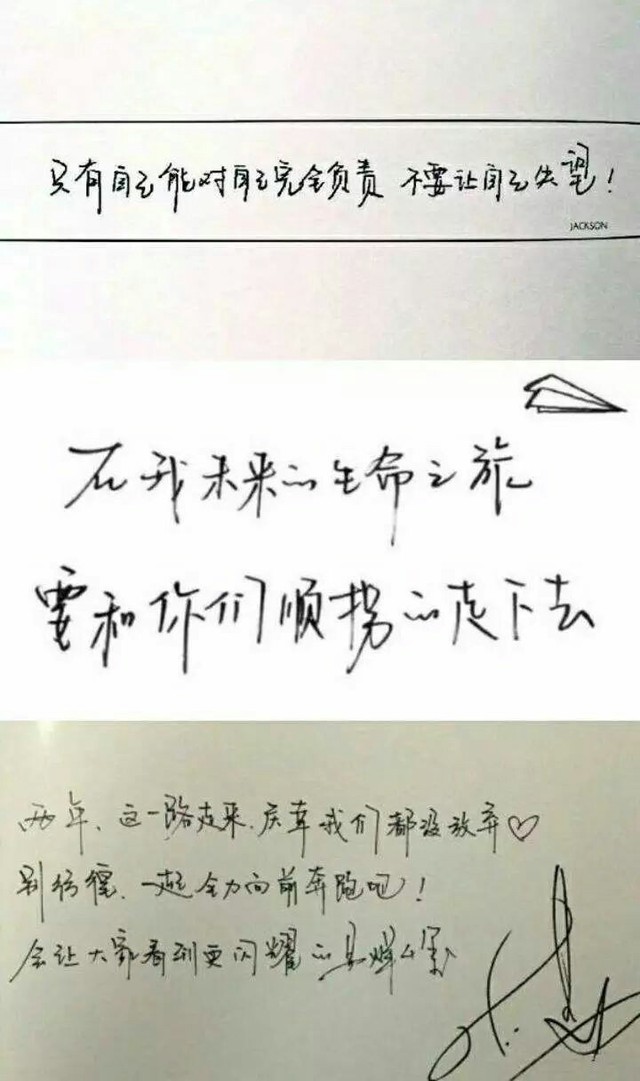 只有自己能对自己完全负责 不要让自己失望!
JACKSON
在我未来的生命之旅
要和你们顺拐的走下去
两年、这一路走来.庆幸我们都没放弃♡
别彷徨、一起全力向前奔跑吧!
会让大家看到更闪耀的